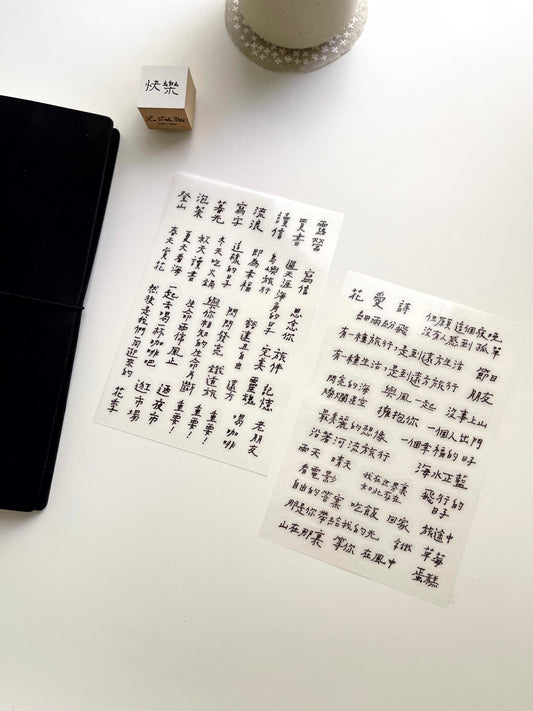 快樂
La Dolce Vita
露營
買書
讀信
流浪
寫字
暮光
泡茶
登山
寫信
思念你
旅伴
記憶
老朋友
島嶼旅行
完美
靈魂
即為幸福
自由
遠方
喝咖啡
的日子
閃閃發亮
鐵道旅
重要!
冬天吃火鍋
與你相知的生命片斷
重要!
秋天讀書
生命
風止
逛夜市
夏天看海
一起去喝一杯咖啡吧
逛市場
春天賞花
然後是我們一同迎來的
花季
花 愛 詩 但願這個夜晚
細雨紛飛 沒有人感到孤單
有一種旅行,走到遠方生活 節日
有一種生活,走到遠方旅行 朋友
閃亮的海 與風一起 沒事上山
燦爛星空 擁抱你 一個人出門
最美麗的想像 一個幸福的日子
沿著河流旅行 海水正藍
雨天 晴天 我在世界裏 飛行的
看電影 如此存在 日子
自由的答案 吃飯 回家 旅途中
那是你帶給我的光 鐵 草莓
山在那裏 等你 在風中 蛋糕